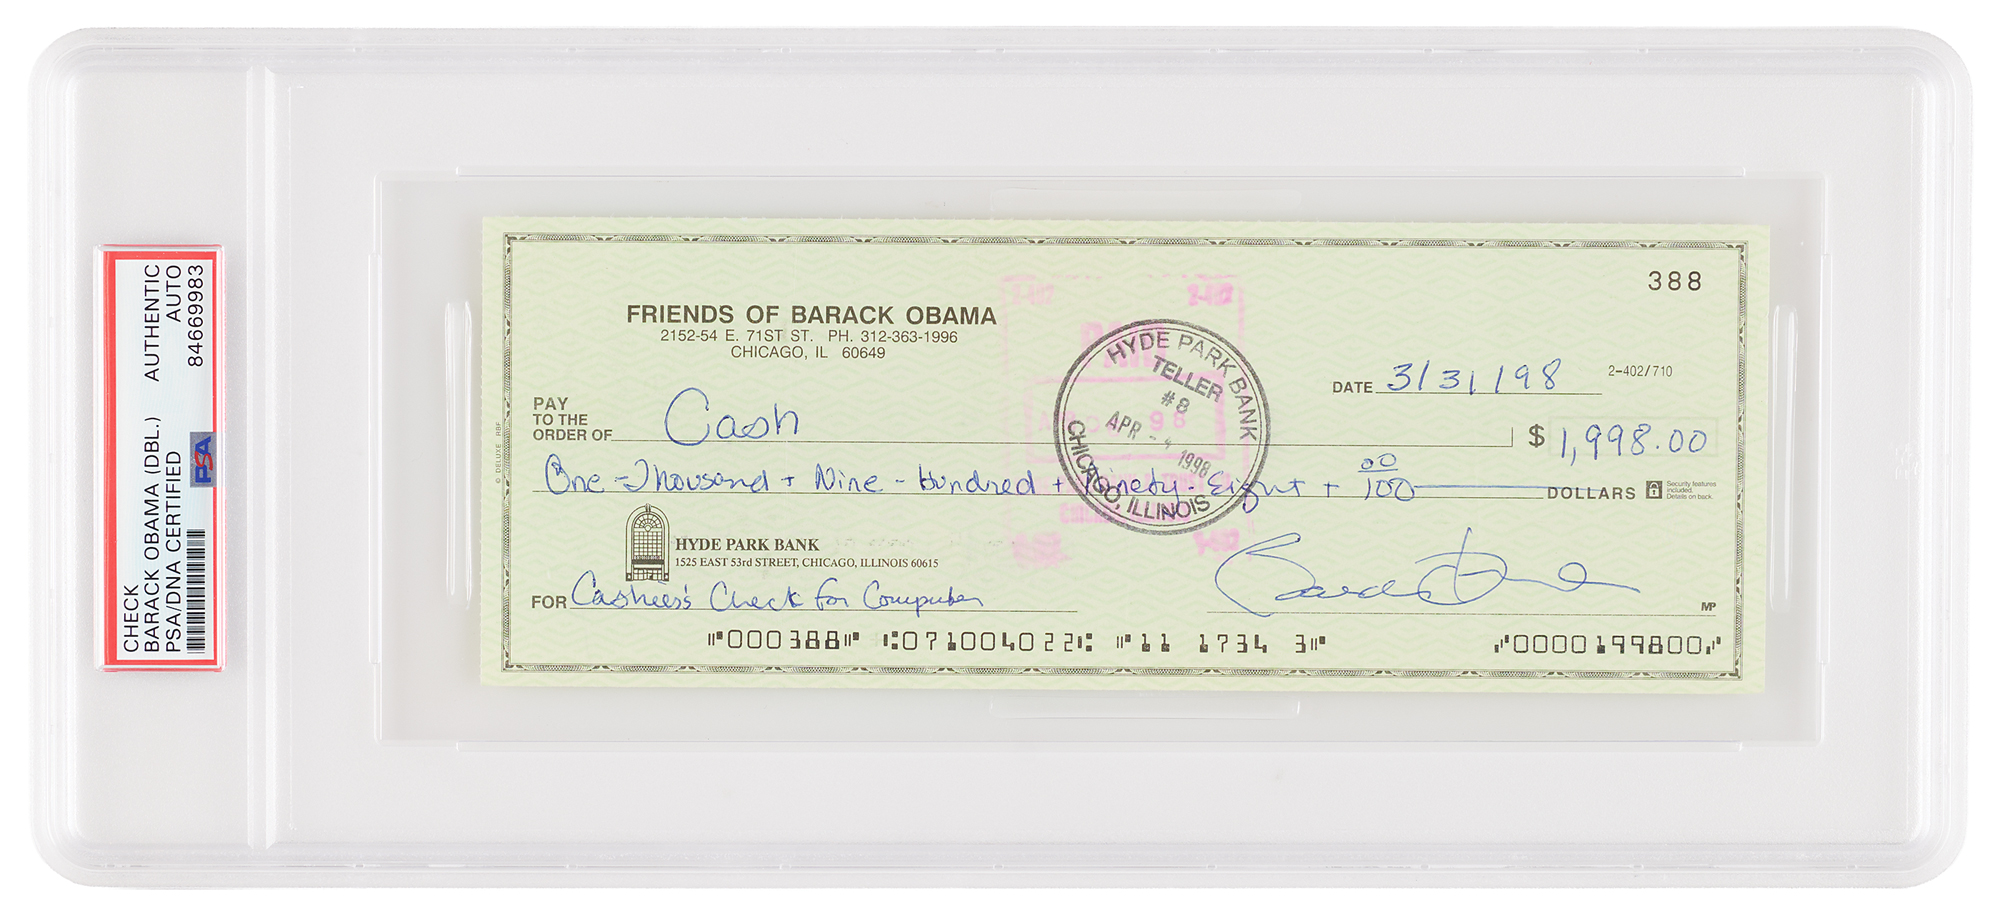 CHECK AUTHENTIC
BARACK OBAMA (DBL.) AUTO
PSA/DNA CERTIFIED 84669983
PSA
388
FRIENDS OF BARACK OBAMA
2152-54 E. 71ST ST. PH. 312-363-1996
CHICAGO, IL 60649
DATE 3/31/98 2-402/710
PAY
TO THE
ORDER OF Cash $ 1,998.00
One-Thousand + Nine-Hundred + Ninety-Eight + 00/100 DOLLARS
Security features
included.
Details on back.
© DELUXE RBF
HYDE PARK BANK
TELLER
#8
APR - 4 1998
CHICAGO, ILLINOIS
2-402
98
HYDE PARK BANK
1525 EAST 53rd STREET, CHICAGO, ILLINOIS 60615
FOR Cashier's Check for Computer
MP
⑈000388⑈ ⑆071004022⑆ ⑈11 1734 3⑈ ⑇0000199800⑇